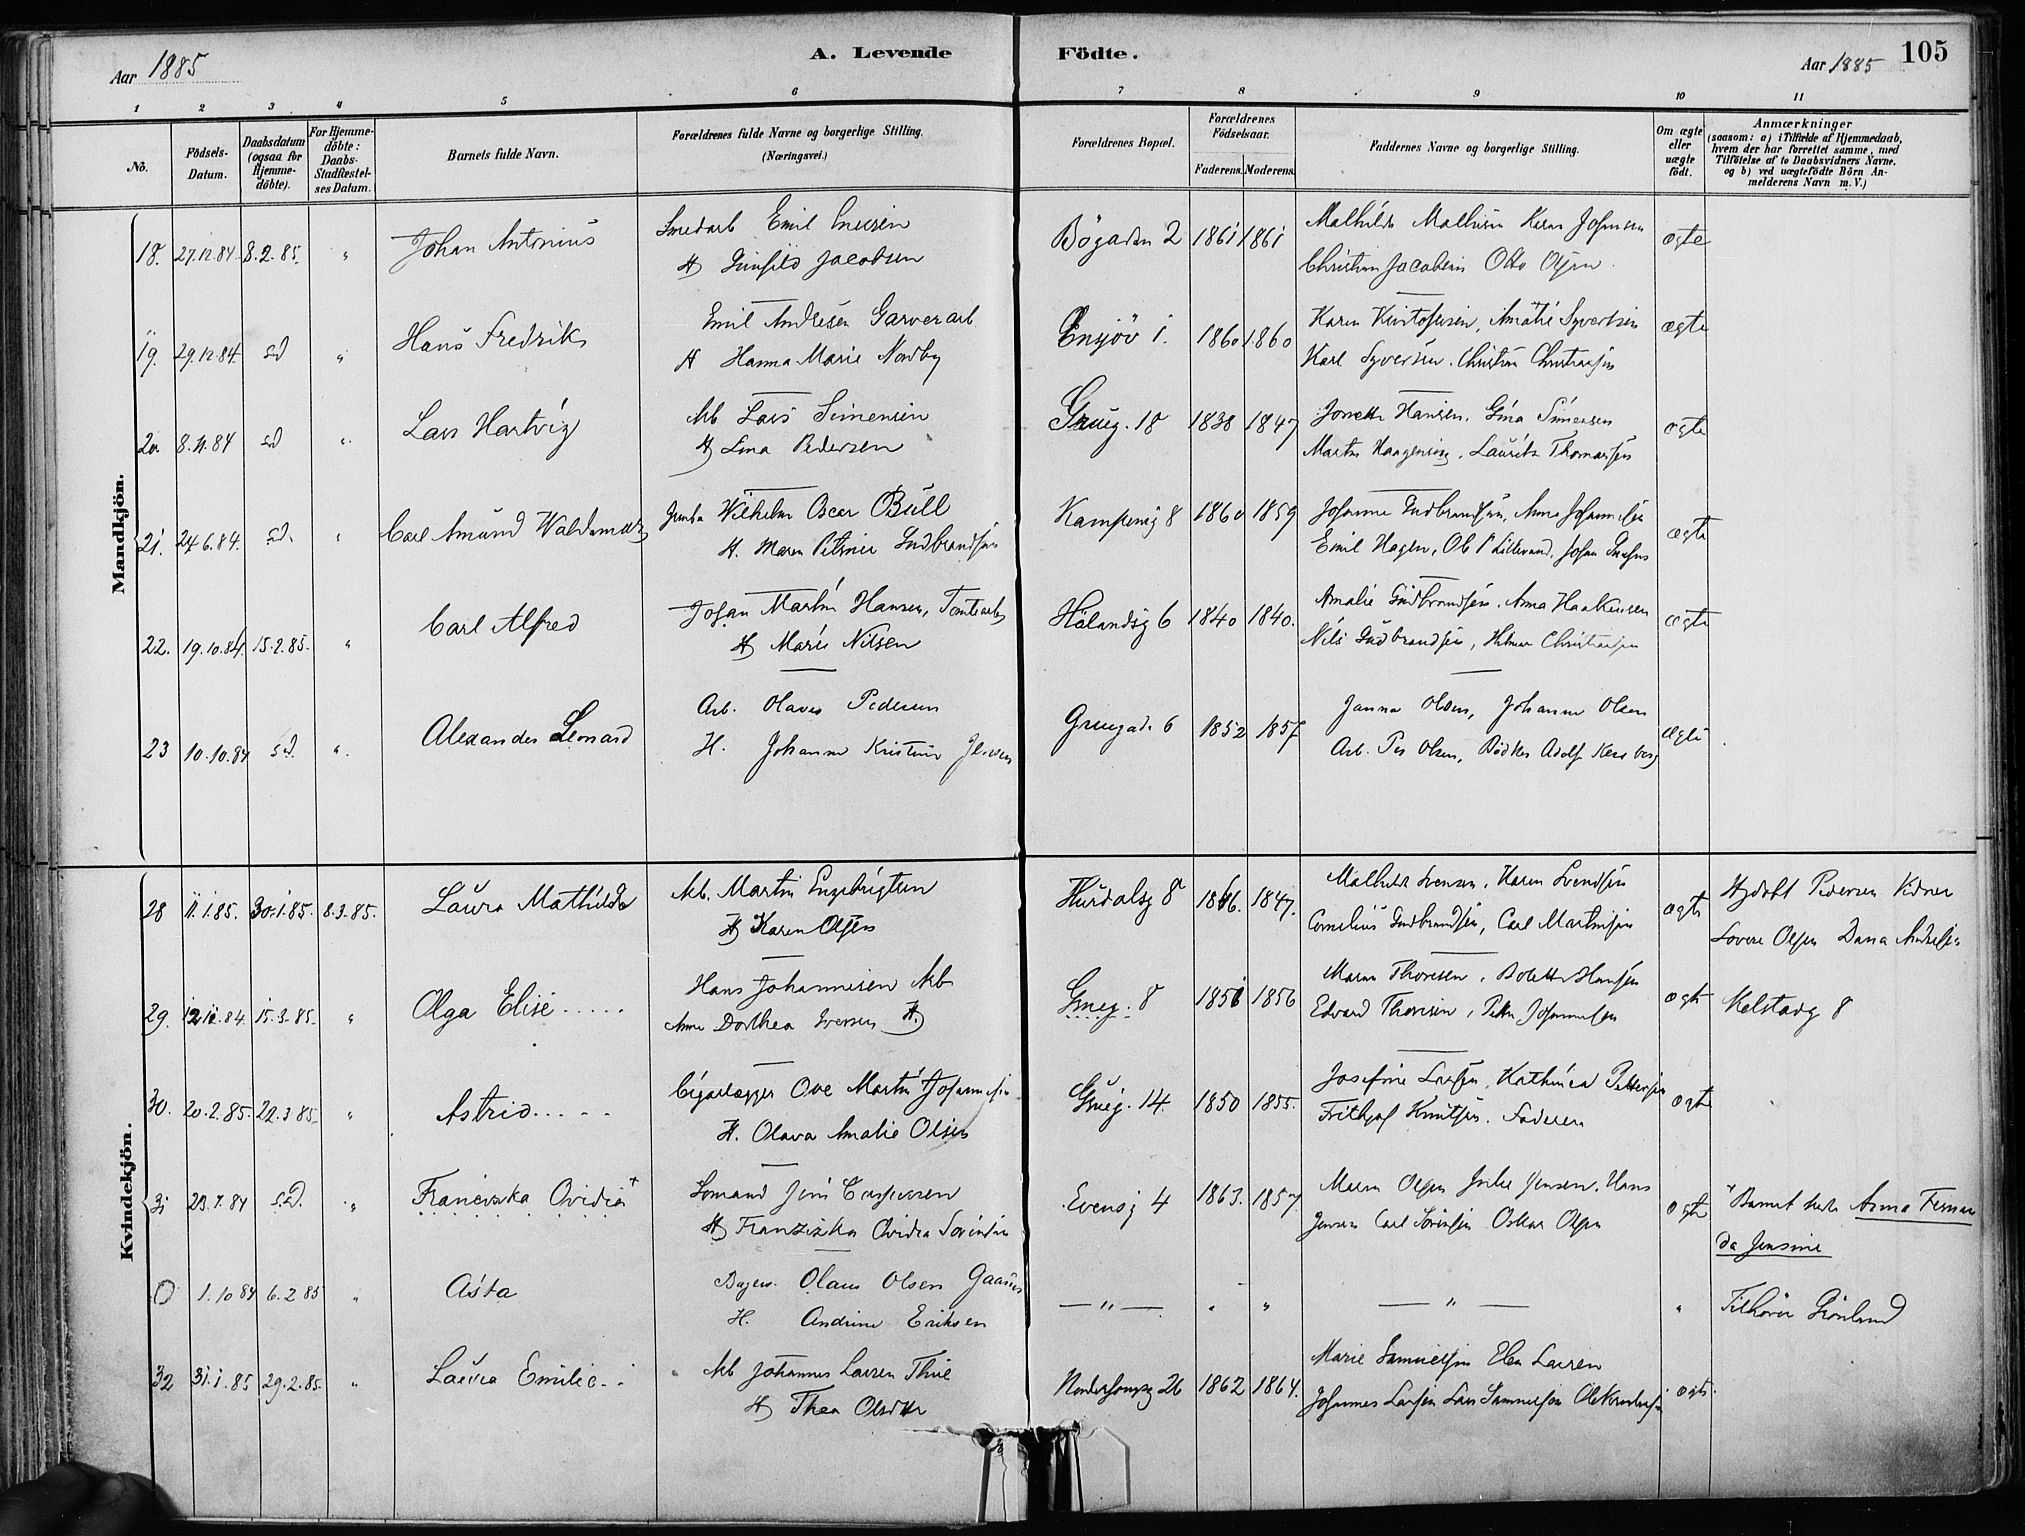 Aar 1885
A. Levende Födte.
Aar 1885 105
1 2 3 4 5 6 7 8 9 10 11
No.
Födsels-Datum.
Daabsdatum (ogsaa for Hjemmedöbte).
For Hjemmedöbte: Daabs-Stadfæstelses Datum.
Barnets fulde Navn.
Forældrenes fulde Navne og borgerlige Stilling.
(Næringsvei.)
Forældrenes Bopæl.
Forældrenes Födselsaar.
Faderens. Moderens.
Faddernes Navne og borgerlige Stilling.
Om ægte eller uægte födt.
Anmærkninger
(saasom: a) i Tilfælde af Hjemmedaab, hvem der har forrettet samme, med Tilföielse af to Daabsvidners Navne. og b) ved uægtefödte Börn Anmelderens Navn m. V.)
Mandkjön.
18. 27.12.84. 8.2.85. " Johan Antonius
Smedarb Emil
H Jacobsen
Bögaden 2 1861 1861
Mathilde Mathisen Karen Johnsen
Christian Jacobsen Otto Olsen
ægte
19. 29.12.84. sd " Hans Fredrik
Emil Andresen Garverarb
H Hanna Marie Nordby
Ensjöv 1. 1860 1860
Karen Kristofersen, Amalie Syvertsen
Karl Syversen. Christian Christiansen
ægte
20 8.11.84 sd " Lars Hartvig
Arb Lars Simensen
H Lina Pedersen
Grueg. 18 1838 1847
Hansen. Gina Simensen
Martin Lauritz Thomassen
ægte
21. 24.6.84. sd. " Carl Amund Waldemar
Wilhelm Oscar Bull
H. Maren Petrine Gudbrandsen
Kampenig 8 1860 1859
Johanne Gudbrandsen, Anna Johannesen
Emil Hagen, Ole P
ægte
22. 19.10.84. 15.2.85. " Carl Alfred
Johan Martin Hansen,
H Marie Nilsen
Hölandsg 6 1840 1840.
Amalie Gudbrandsen. Anna Haakensen
Nils Gudbrandsen, Hilmar Christiansen
ægte
23 10.10.84 sd. " Alexander Leonard
Arb. Olaves Pedersen
H. Johanne Kristine
Gruegade 6 1852 1857
Janna Olsen, Johanne Olsen
Arb. Per Olsen, Bödker Adolf
ægte
Kvindekjön.
28 11.1.85. 30.1.85. 8.3.85. Laura Mathilde
Arb. Martin Engebrigtsen
H Karen Olsen
Hurdalsg 8 1846. 1847.
Mathilde Svensen, Karen Svendsen
Cornelius Gudbrandsen, Carl Martinsen
ægte
Pedersen Vidner
Lovere Olsen Dana Andresen
29. 12.12.84. 15.3.85. " Olga Elise
Hans Johannesen Arb
Anne Dorthea Iversen H.
Grueg. 8 1851 1856
Maren Thoresen, Bolette Hansen
Edvard Thoresen, Petter Johannesen
ægte
Kelstadg 8
30. 20.2.85. 22.3.85. " Astrid
Cigarlægger Ove Martin Johannesen
H. Olava Amalie Olsen
Grueg. 14. 1850 1855.
Josefine Larsen, Kathinca Pettersen
Frithjof Knutsen. Faderen
ægte
31 23.7.84 sd. " Franciska Ovidia +
Sömand Jens Caspersen
H Franziska Ovidia Sörensen
Evensg 4 1863. 1857.
Maren Olsen Julie Jensen. Hans
Jensen Carl Sörensen Oskar Olsen
ægte
+ Barnet hede Anna Fernanda Jensine
0 1.10.84 6.2.85 " Asta
Bager. Olaus Olsen
H. Andrine Eriksen
— " — " " — " — "
Tilhörer Grönland
32 31.1.85 29.2.85. " Laura Emilie
Arb Johannes Larsen Thue
H Thea Olsdttr
26 1862 1864.
Marie Samuelsen Elen Larsen
Johannes Larsen Lars Samuelsen Ole
ægte